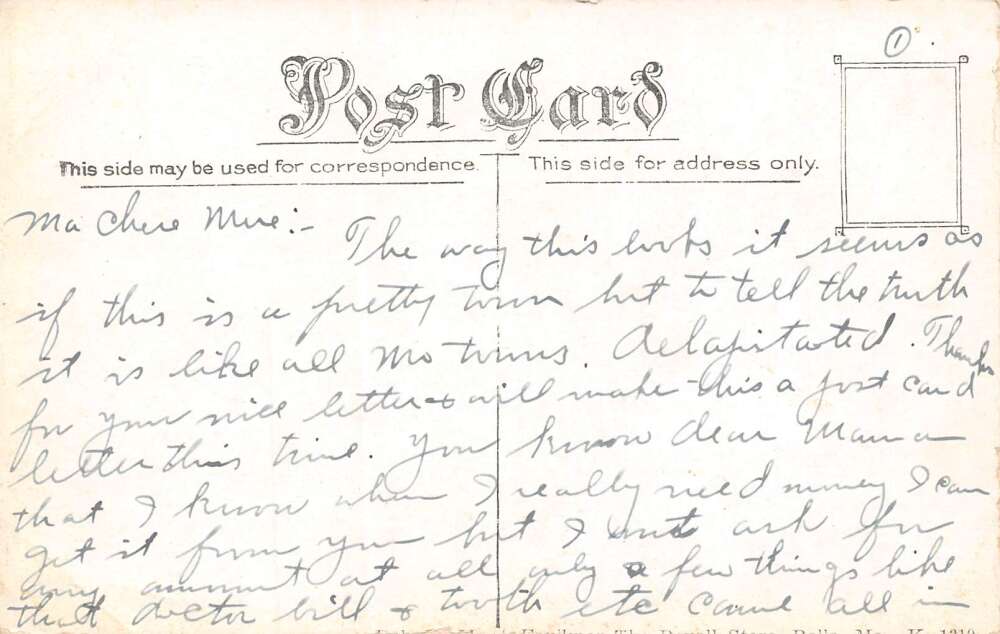 ①
Post Card
This side may be used for correspondence.
This side for address only.
Ma Chere Mere:-
The way this looks it seems as
if this is a pretty town but to tell the truth
it is like all Mo towns. Delapitated. Thanks
for your nice letter & will make this a post card
letter this time. You know dear Mama
that I know when I really need money I can
get it from you but I wont ask for
any amount at all only a few things like
that doctor bill & tooth etc came all in